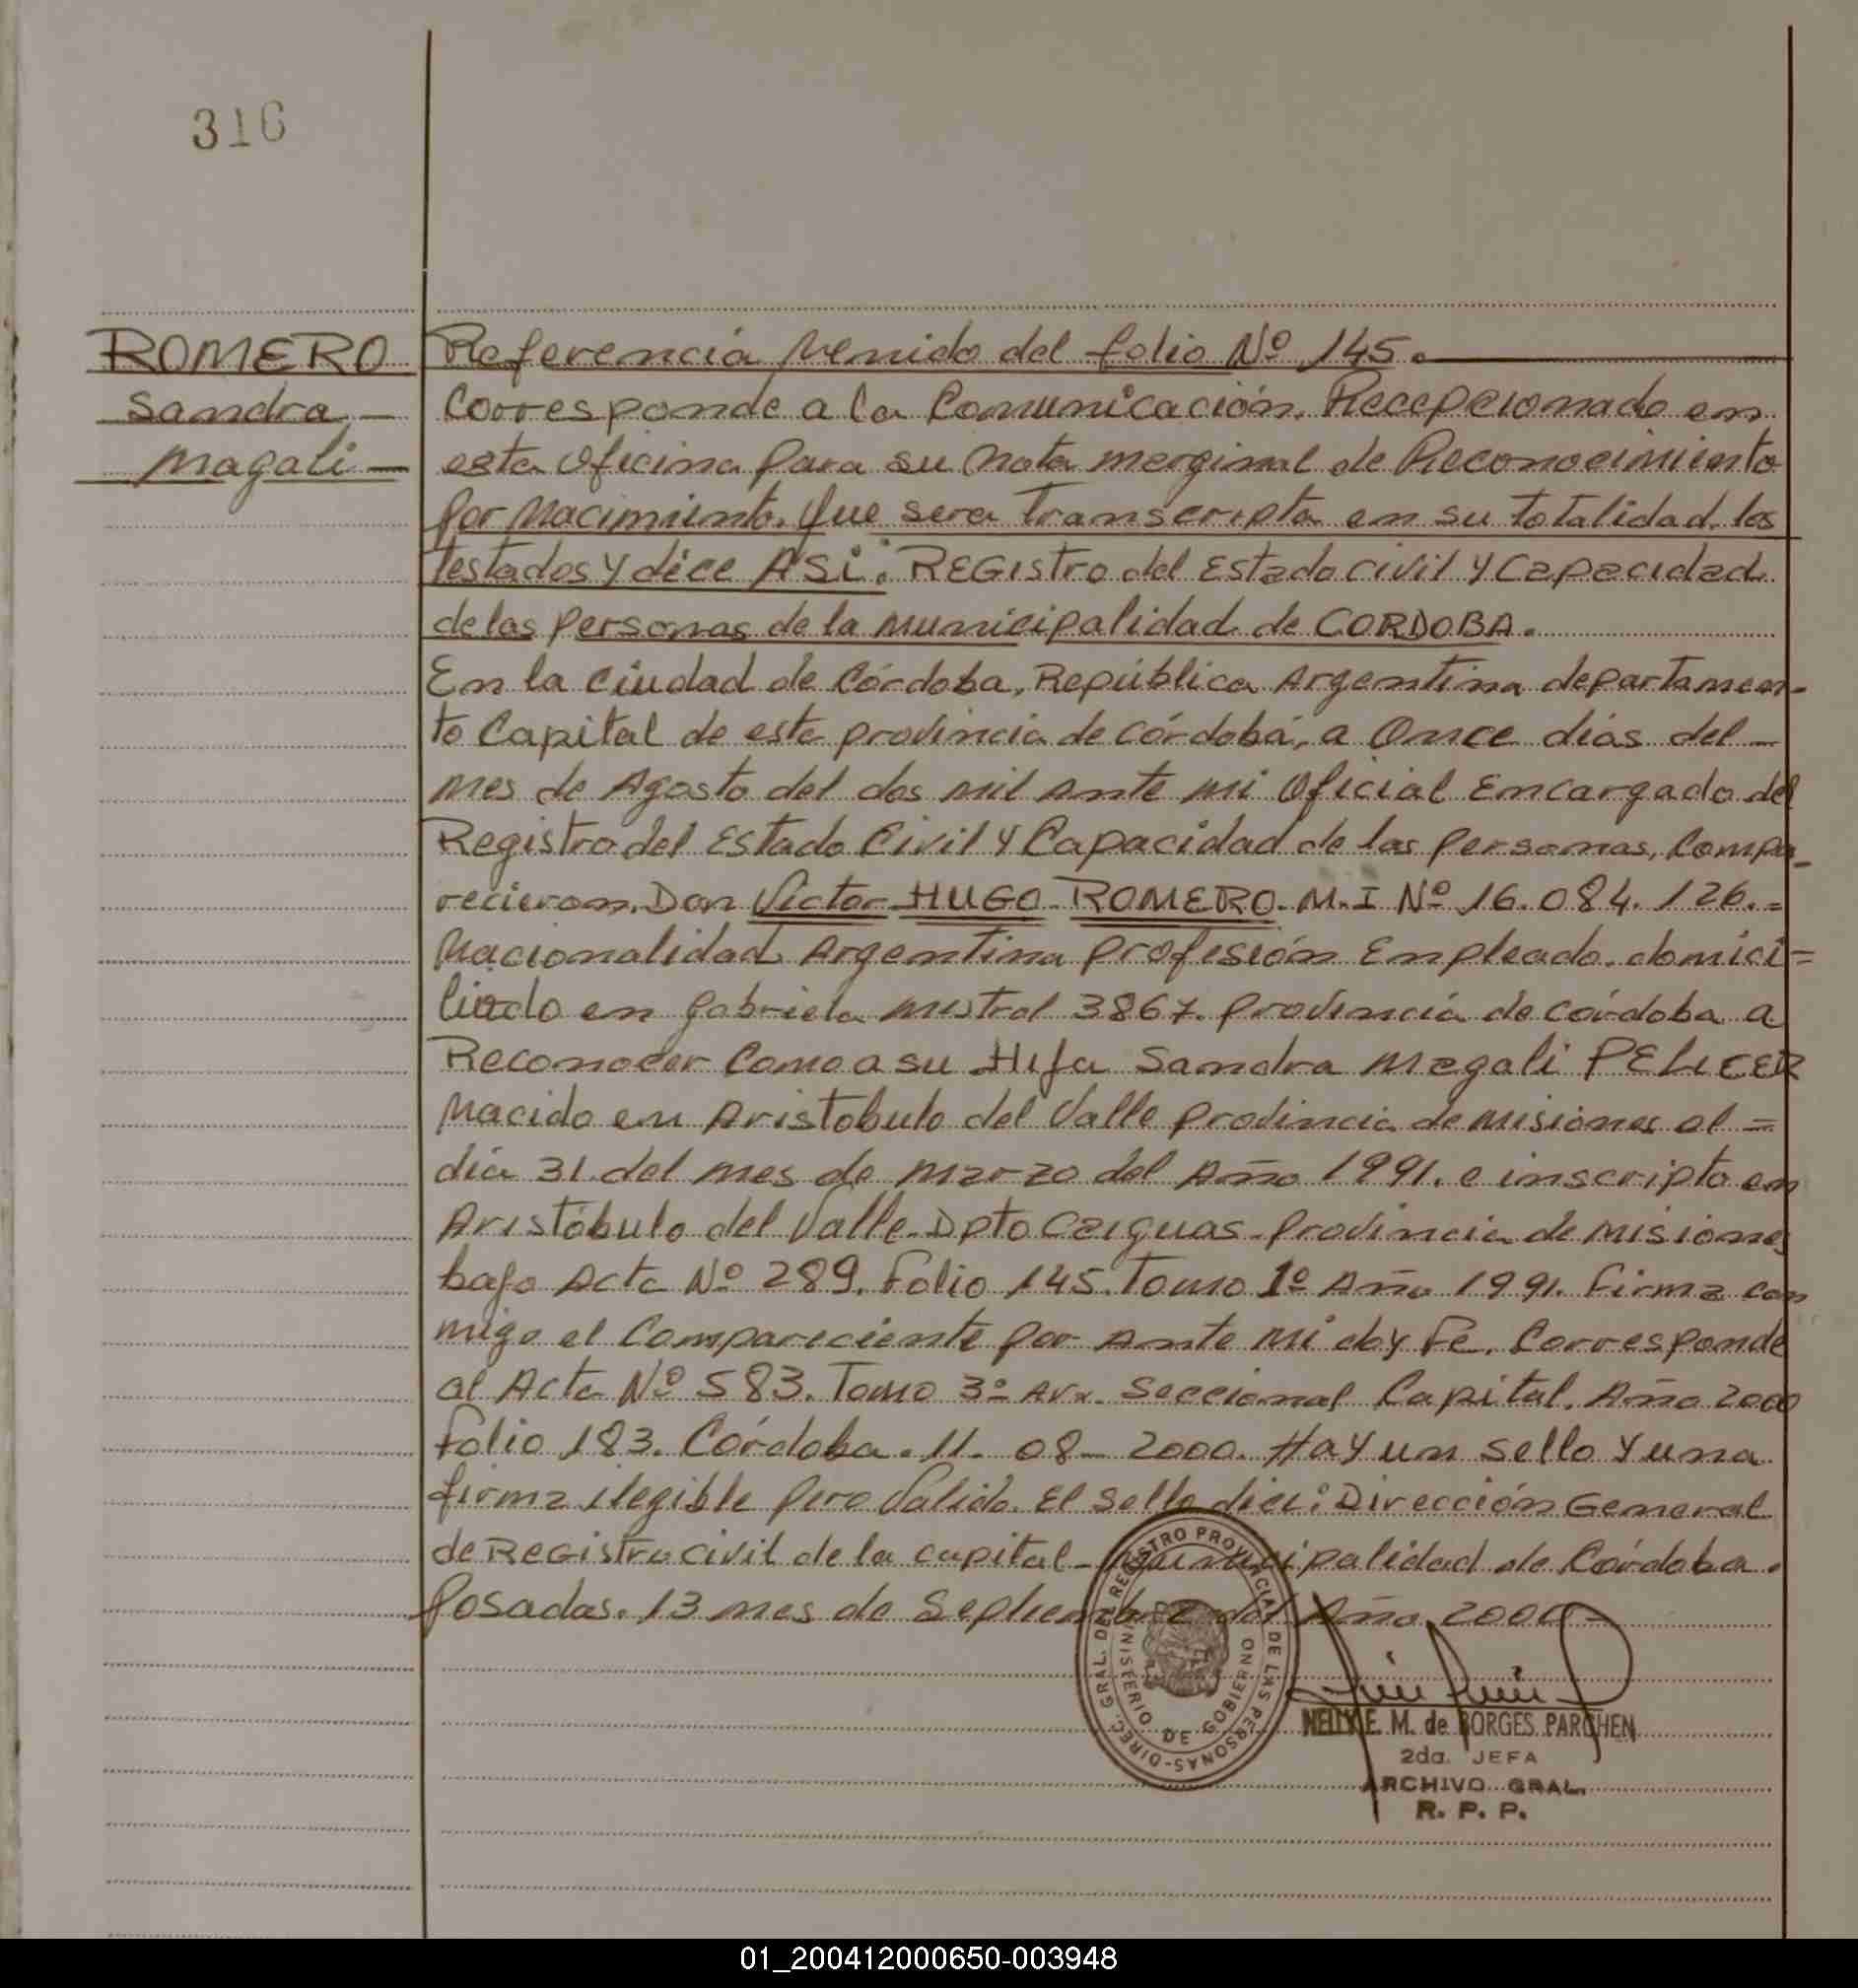 316
ROMERO
Sandra -
Magali -
Referencia Venido del folio Nº 145.
Corresponde a la Comunicación. Recepcionado en
esta Oficina para su Nota merginal de Reconocimiento
por Nacimiento. Que sera Transcripta en su totalidad. los
testados y dice ASi: REGistro del Estado civil y Capacidad
de las Personas de la Municipalidad de CORDOBA.
En la Ciudad de Córdoba, República Argentina departamen-
to Capital de esta provincia de Córdoba, a Once días del -
mes de Agosto del dos mil Ante mi Oficial Encargado del
Registro del Estado Civil y Capacidad de las Personas, Compa-
recieron. Don Victor HUGO ROMERO. M.I Nº 16.084.126.=
Nacionalidad Argentina Profesión Empleado. domici=
liado en Gabriela Mistral 3867. Provincia de Córdoba a
Reconocer Como a su Hija Sandra Megali PELICER
Nacido en Aristobulo del Valle Provincia de Misiones el =
día 31. del mes de Marzo del Año 1991. e inscripto en
Aristóbulo del Valle. Dpto Caiguas - Provincia de Misiones
bajo Acta Nº 289. Folio 145. Tomo 1º Año 1991. Firma con
migo el Compareciente por Ante Mi doy Fe. Corresponde
al Acta Nº 583. Tomo 3º Seccional Capital. Año 2000
Folio 183. Córdoba. 11. 08- 2000. Hay un Sello y una
firma ilegible pero Valido. El Sello dice: Dirección General
de REGistro civil de la capital - Municipalidad de Córdoba.
Posadas. 13 mes de Septiembre del Año 2000-
DIREC. GRAL. DEL REGISTRO PROVINCIAL DE LAS PERSONAS-
MINISTERIO DE GOBIERNO
NELLY E. M. de BORGES PARCHEN
2da. JEFA
ARCHIVO GRAL.
R. P. P.
01_200412000650-003948